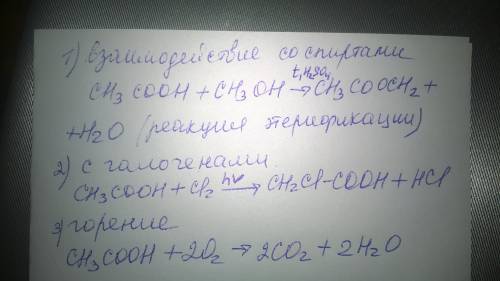 1) Взаимодействие со спиртами
CH3COOH + CH3OH t,H2SO4→ CH3COOCH2 +
+ H2O (реакция этерификации)
2) с галогенами.
CH3COOH + Cl2 hν→ CH2Cl-COOH + HCl
3) горение
CH3COOH + 2O2 → 2CO2 + 2H2O